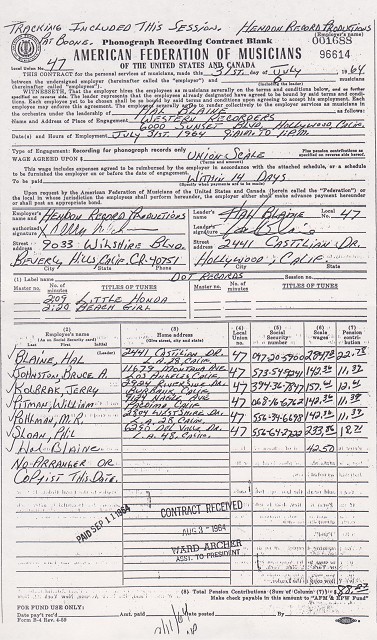 TRACKING INCLUDED THIS SESSION. HENDON RECORD PRODUCTIONS
(Employer's name)
PAT BOONE. Phonograph Recording Contract Blank 001688
AMERICAN FEDERATION OF MUSICIANS 96614
OF THE UNITED STATES AND CANADA
Local Union No. 47
THIS CONTRACT for the personal services of musicians, made this 31st day of July, 1964
between the undersigned employer (hereinafter called the "employer") and 6 musicians
(hereinafter called "employees").
WITNESSETH, That the employer hires the employees as musicians severally on the terms and conditions below, and as further
specified on reverse side. The leader represents that the employees already designated have agreed to be bound by said terms and conditions.
Each employee yet to be chosen shall be so bound by said terms and conditions upon agreeing to accept his employment. Each
employee may enforce this agreement. The employees severally agree to render collectively to the employer services as musicians in
the orchestra under the leadership of HAL BLAINE as follows:
Name and Address of Place of Engagement WESTERN RECORDERS
6000 SUNSET BLVD, HOLLYWOOD, CALIF.
Date(s) and Hours of Employment JULY 31ST 1964
Type of Engagement: Recording for phonograph records only Plus pension contributions as specified on reverse side hereof.
WAGE AGREED UPON $ UNION SCALE
(Terms and amount)
This wage includes expenses agreed to be reimbursed by the employer in accordance with the attached schedule, or a schedule
to be furnished the employer on or before the date of engagement.
To be paid WITHIN 14 DAYS
Upon request by the American Federation of Musicians of the United States and Canada (herein called the "Federation") or the
local in whose jurisdiction the employees shall perform hereunder, the employer either shall make advance payment hereunder
or shall post an appropriate bond.
Employer's name and authorized signature HENDON RECORD PRODUCTIONS
Leader's name HAL BLAINE Local No. 47
Leader's signature Hal Blaine
Street address 9033 WILSHIRE BLVD.
Street address 2441 CASTILIAN DR.
BEVERLY HILLS CALIF. CR-40751
City State Phone
HOLLYWOOD, CALIF.
City State
(1) Label name DOT RECORDS Session no.
Master no. No. of minutes TITLES OF TUNES Master no. No. of minutes TITLES OF TUNES
2:09 LITTLE HONDA
2:20 BEACH GIRL
(2) Employee's name (As on Social Security card) Last First Initial
(3) Home address (Give street, city and state)
(4) Local Union no.
(5) Social Security number
(6) Scale wages
(7) Pension contribution
BLAINE, HAL (Leader) 2441 CASTILIAN DR. L.A. 28 CALIF. 47
JOHNSTON, BRUCE A. LOS ANGELES CALIF. 47
KOLBRAK, JERRY 47
PITMAN, WILLIAM 47
POHLMAN, M.R. L.A. 28 CALIF. 47
SLOAN, PHIL L.A. 48, CALIF. 47
Hal Blaine 42.50
NO ARRANGER OR
COPYIST THIS DATE.
PAID SEP 11 1964
CONTRACT RECEIVED
AUG 3 1964
WARD ARCHER
ASST. TO PRESIDENT
(8) Total Pension Contributions (Sum of Column (7)) $
Make check payable in this amount to "AFM & EPW Fund"
FOR FUND USE ONLY:
Date pay't rec'd Amt. paid Date posted By
Form B-4 Rev. 4-59